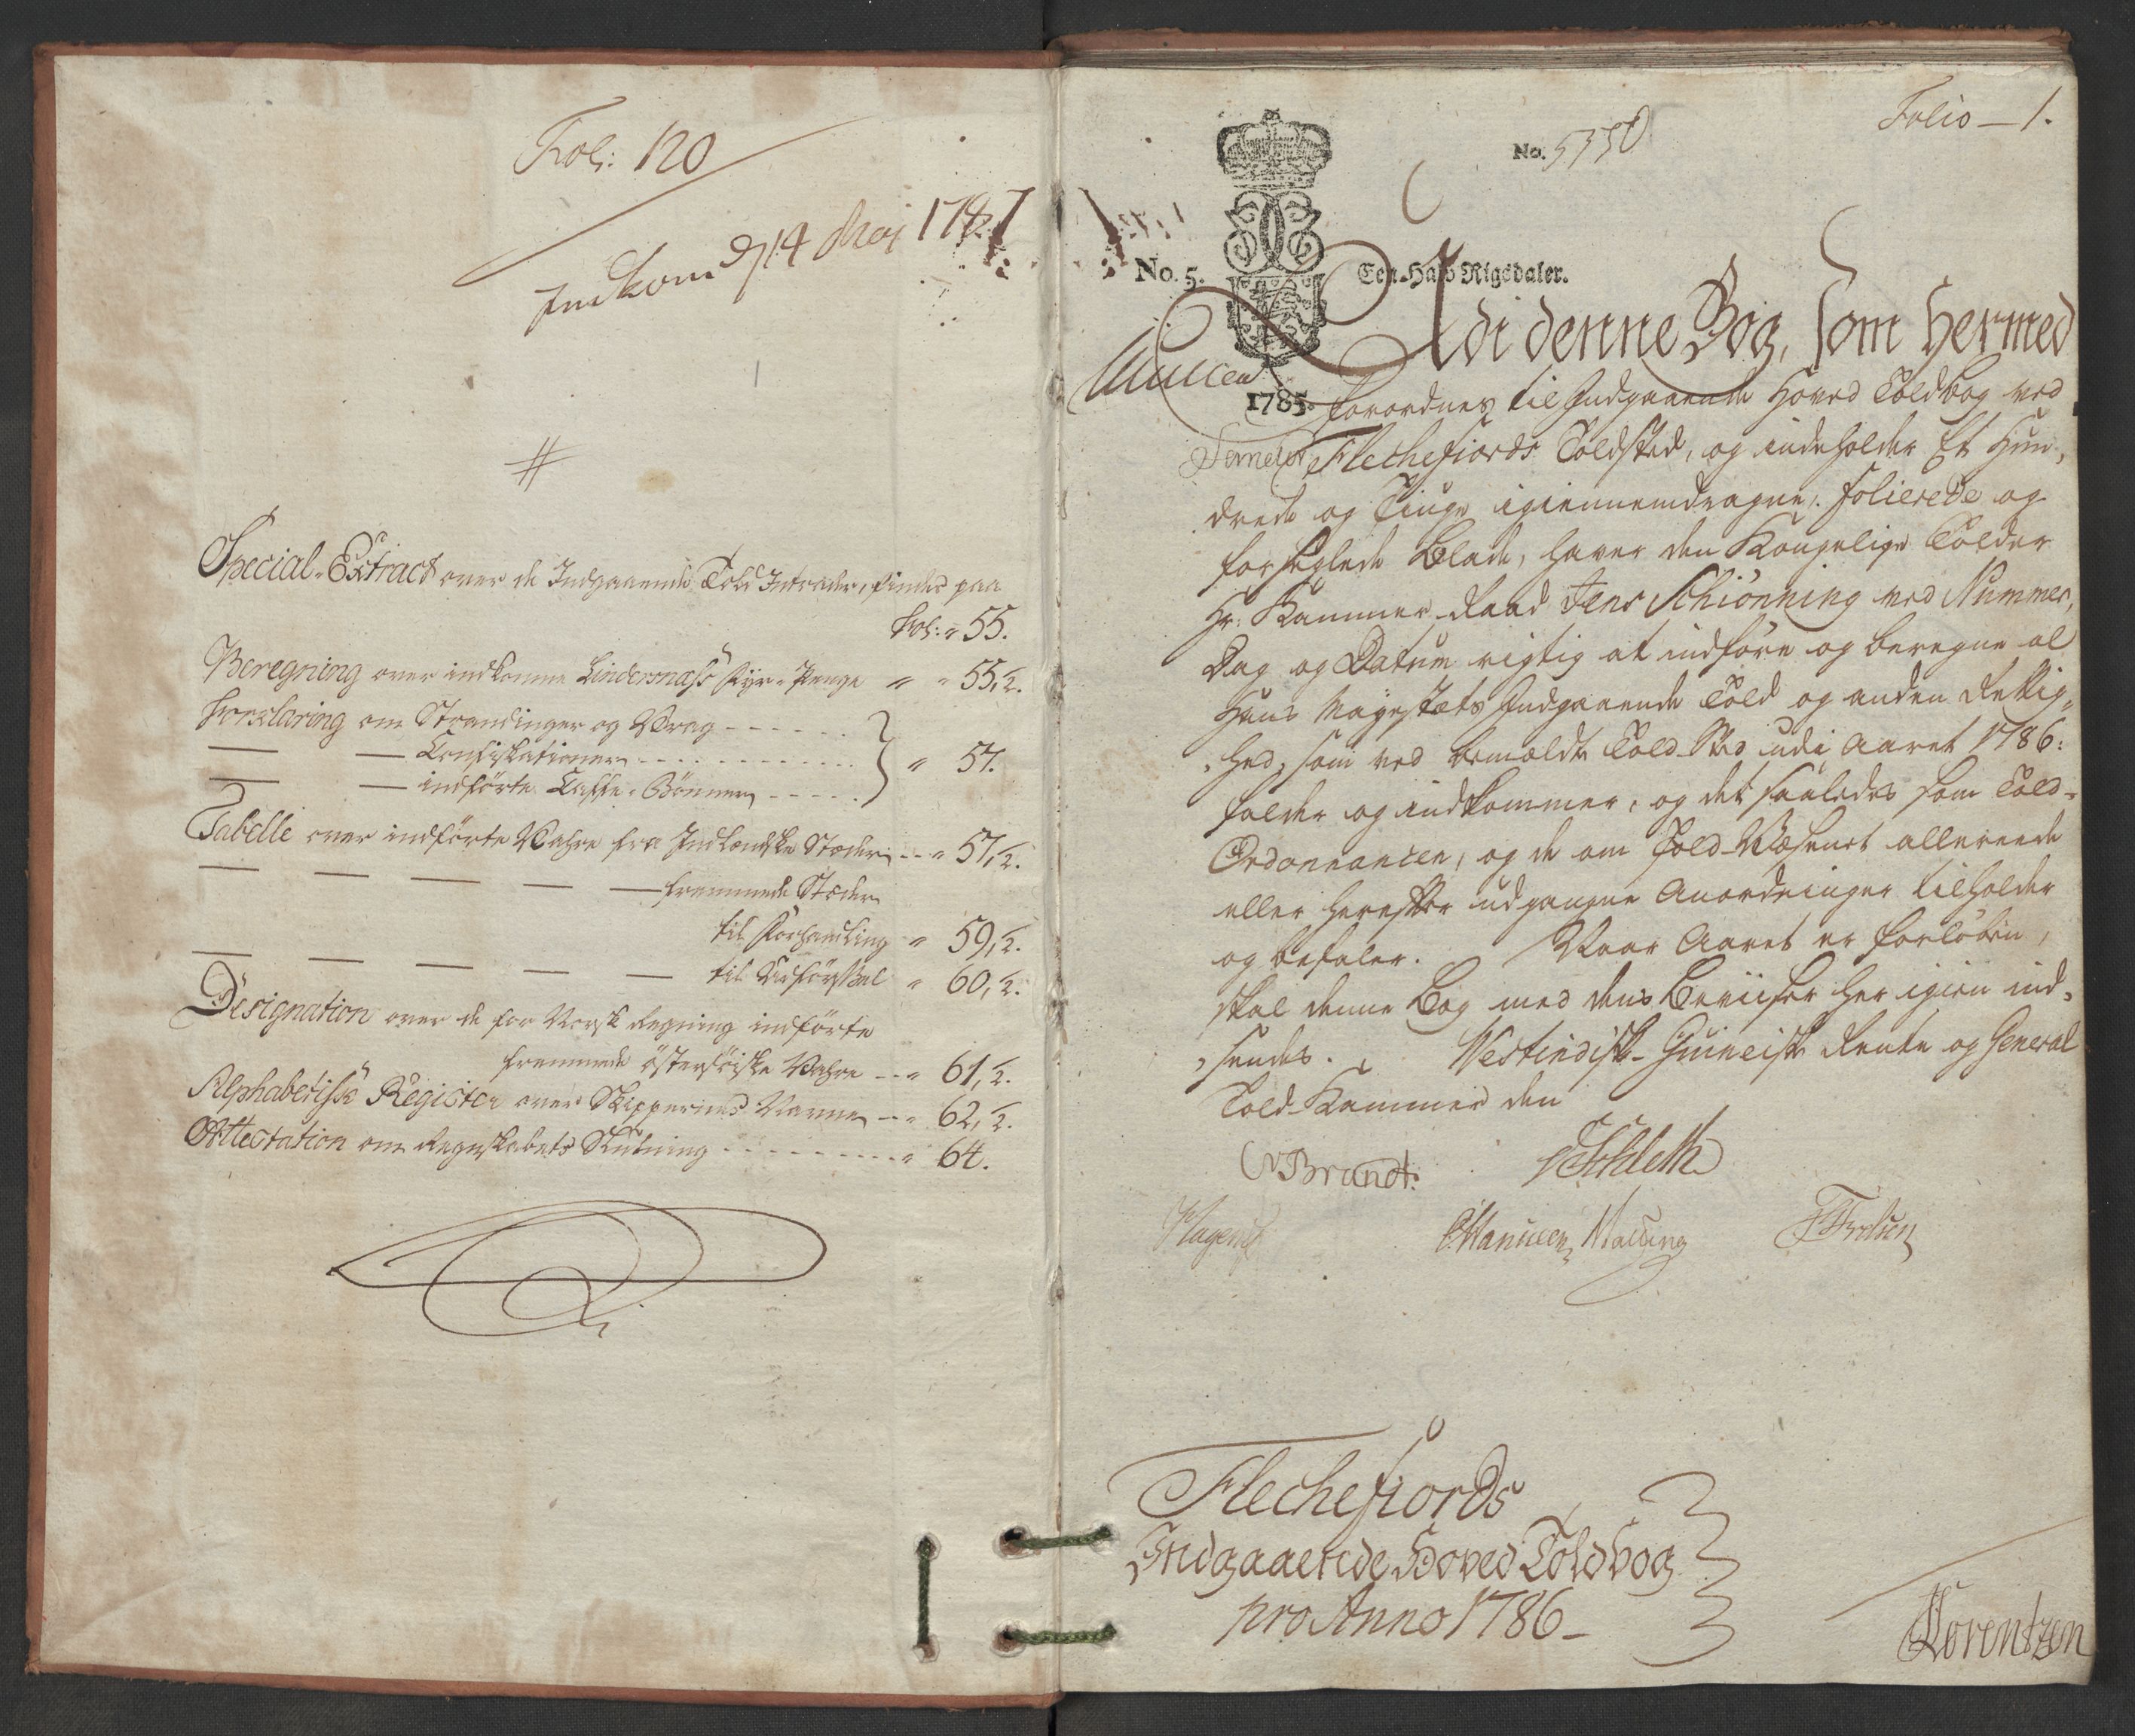 Fol: 120
Indkom d 14 Maj 1787
Special-Extract over de Indgaaende Told Intrader, findes paa
Fol: " 55.
Beregning over indkomne Lindersnæss Fyr-Penge " " 55,½.
Forklaring om Strandinger og Vrag - - - - - -
— — Confiskationer - - - - - - - - " 57.
— — indførte Caffe-Bønner - - - - -
Tabelle over indførte Vahre fra Indlændske Stæder - - " 57,½.
— — — — — — fremmede Stæder
til Forhandling " 59,½.
— — — — — — til Udførskel " 60,½.
Designation over de for Norsk Regning indførte
fremmede østersøiske Vahre - - " 61,½.
Alphabetisk Register over Skippernes Navne - - " 62,½.
Attestation om Regnskabets Slutning - - - - - - - - - " 64.
Folio — 1.
No. 5350
No. 5. Een-Halv Rigsdaler.
Udi denne Bog, som hermed
1785.
forordnes til Indgaaende Hoved Toldbog ved
Flechefiords Toldsted, og indeholder Et Hun-
drede og Tiuge igiennemdragne, folierede og
forseglede Blade, haver den Kongelige Tolder
Hr: Kammer-Raad Jens Schiönning ved Nummer,
Dag og Datum rigtig at indføre og beregne al
Hans Mayestæts Indgaaende Told og anden Rettig-
hed, som ved bemældte Told-Sted udi Aaret 1786:
falder og indkommer, og det saaledes som Told-
Ordonnancen, og de om Told-Væsenet allereede
eller herefter udgangne Anordninger tilholder
og befaler. Naar Aaret er forløben,
skal denne Bog med dens Beviiser her igien ind-
sendes. Vestindisk-Guineisk Rente og General
Told-Kammer den
Brandt.
Manicen Malling
Flechefiords
Indgaaende Hoved Toldbog
pro Anno 1786-
Lorentzen